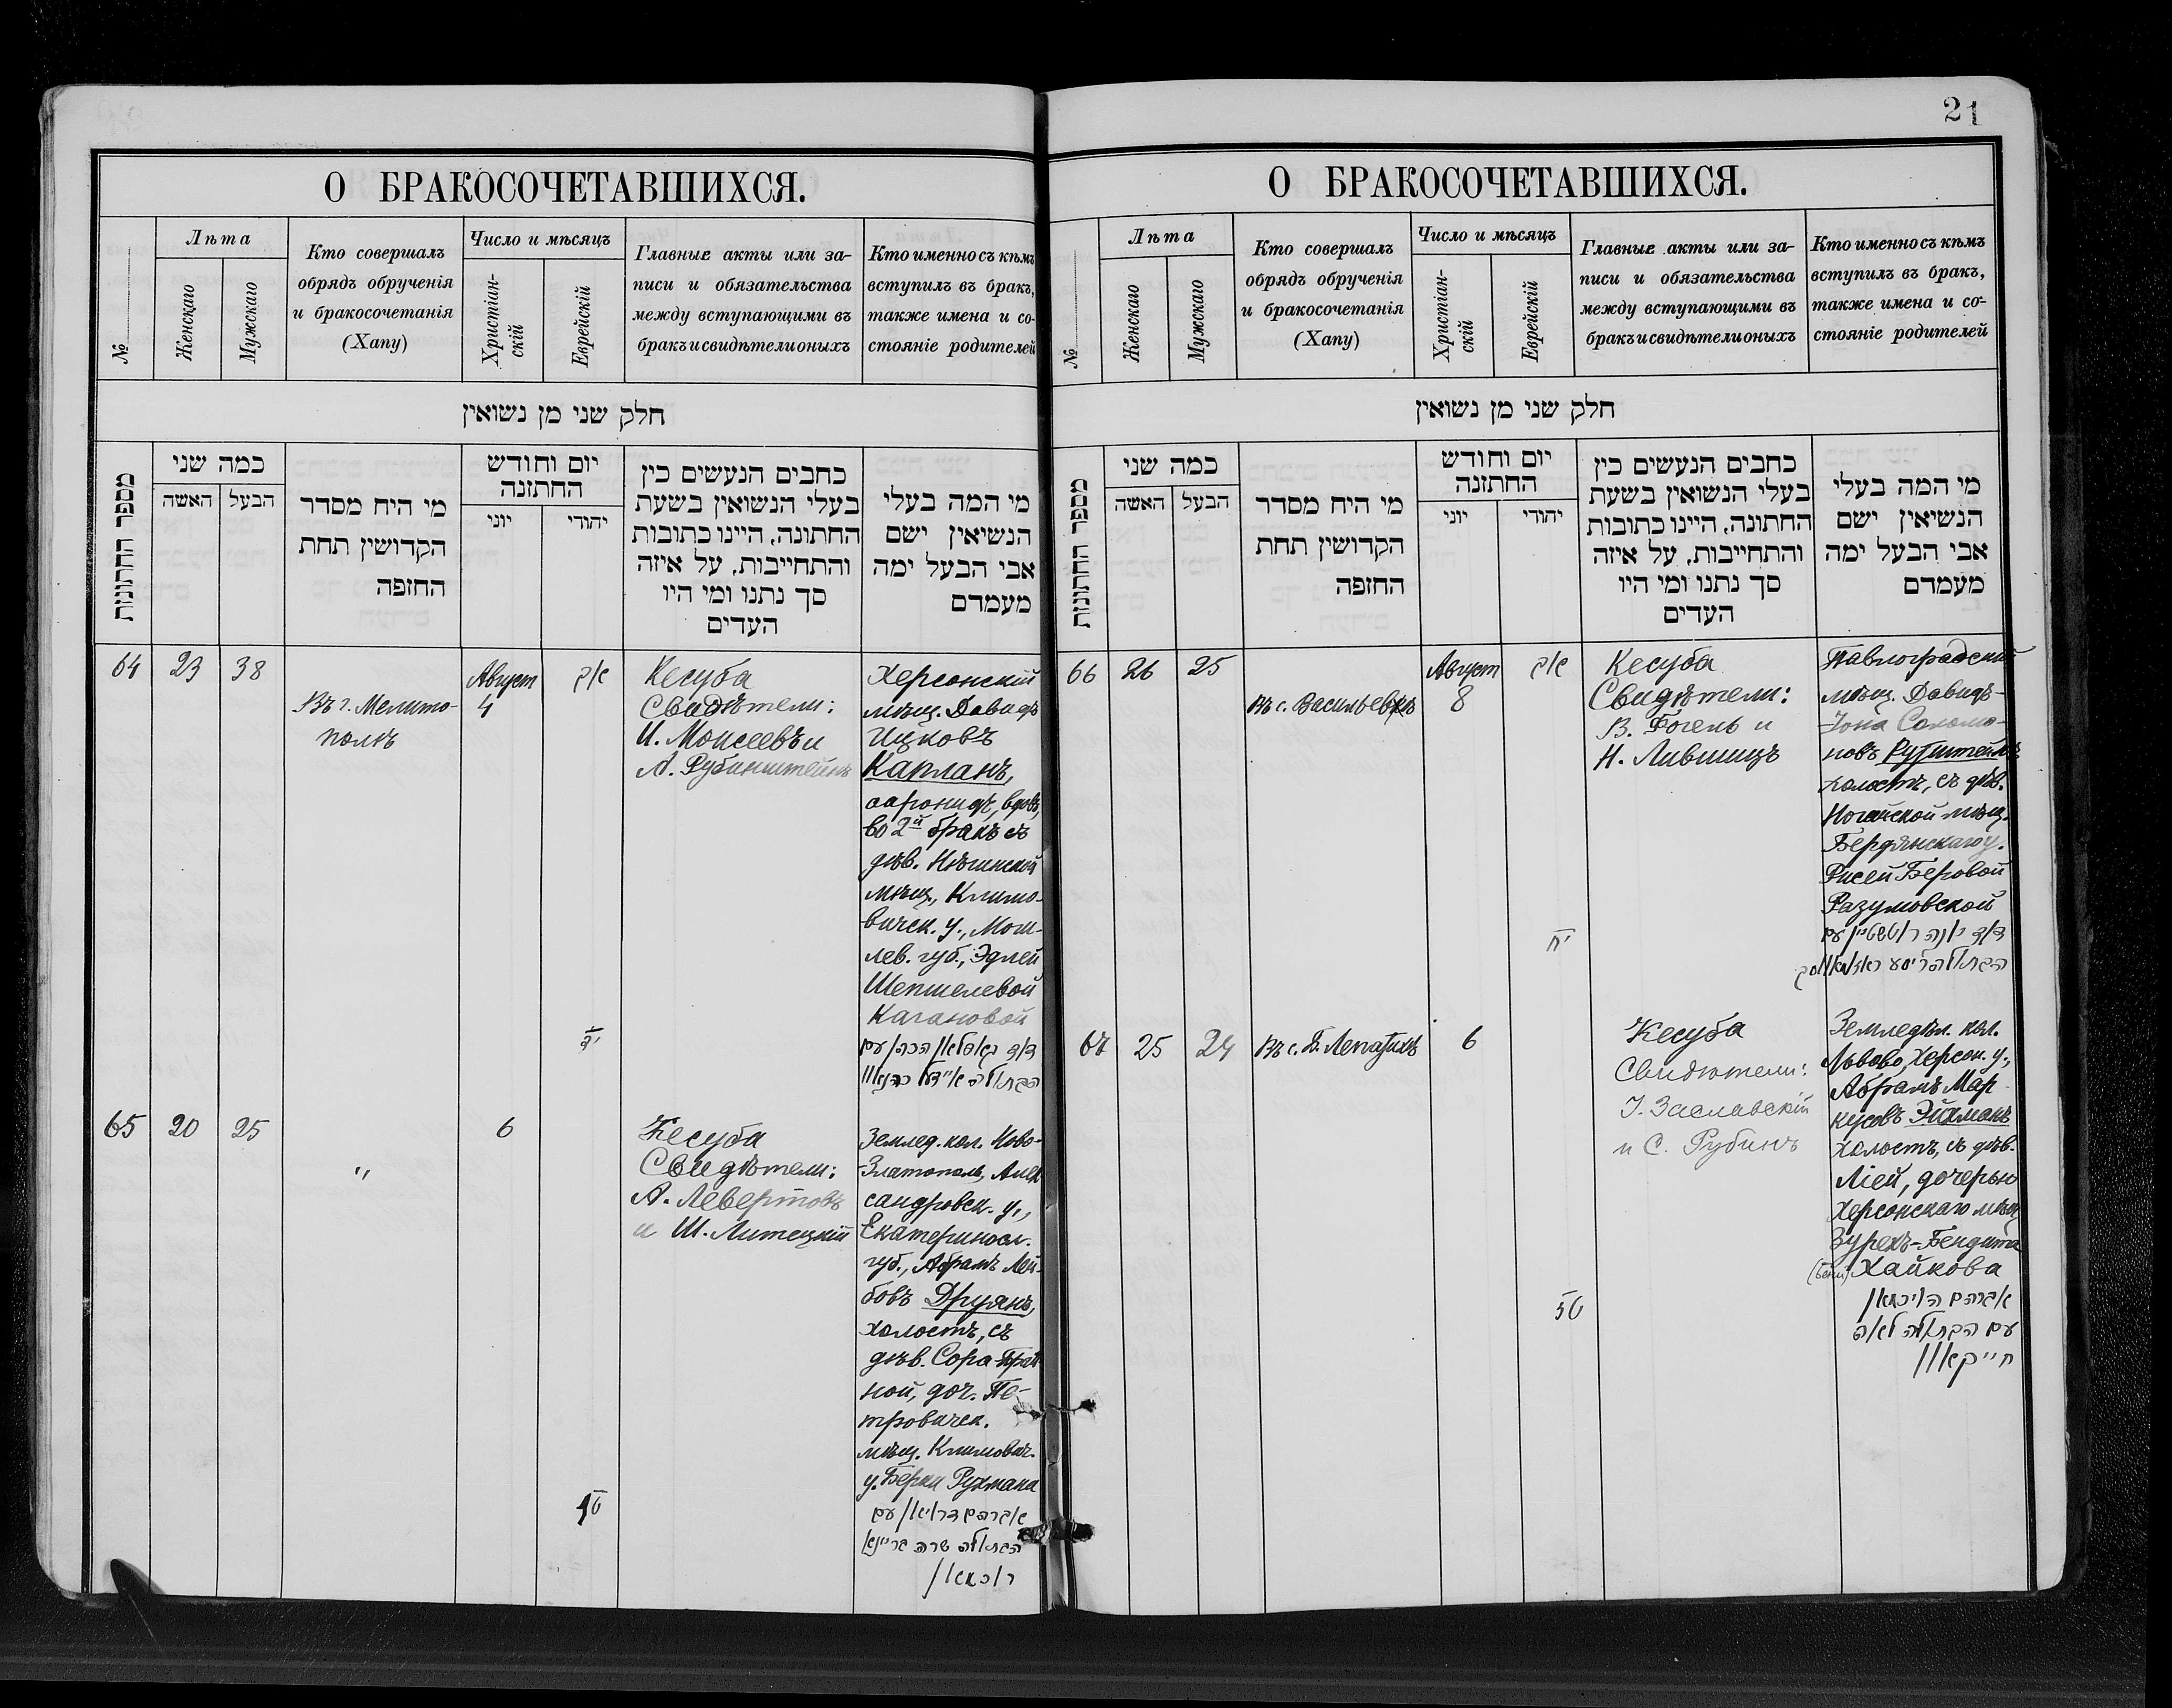 О БРАКОСОЧЕТАВШИХСЯ.
№
Лѣта
Женскаго
Мужскаго
Кто совершалъ
обрядъ обрученія
и бракосочетанія
(Хапу)
Число и мѣсяцъ
Христіан-
скій
Еврейскій
Главные акты или за-
писи и обязательства
между вступающими въ
бракъ и свидѣтели оныхъ
Кто именно съ кѣмъ
вступилъ въ бракъ,
также имена и со-
стояніе родителей
חלק שני מן נשואין
מספר החתונות
כמה שני
האשה
הבעל
מי היח מסדר
הקדושין תחת
החזפה
יום וחודש
החתזנה
יוני
יהודי
כחבים הנעשים כין
בעלי הנשואין בשעת
החתונה, היינו כתובות
והתחייבות, על איזה
סך נתנו ומי היו
העדים
מי המה בעלי
הנשיאין ישם
אבי הבעל ימה
מעמדם
64
23
38
Въ г. Мелито-
полѣ
Август
4
אב
יד
Кесуба
Свидѣтели:
И. Моисеевъ и
А. Рубинштейнъ
Херсонскій
мѣщ. Давидъ
Ицковъ
Капланъ,
ааронидъ, вдовъ,
во 2й бракъ съ
дѣв. Нѣгинской
мѣщ., Климо-
вичск. у., Моги-
лев. губ., Эдлей
Шепшелевой
Кагановой
דוד קאפלאן הכהן עם
הבתולה איידל כהנאוו
65
20
25
"
6
Кесуба
Свидѣтели:
А. Левертовъ
и Ш. Литецкій
Землед. кол. Ново-
Златополь, Алек
сандровск. у.,
Екатеринosл.
губ., Абрамъ Лей-
бовъ Друянъ,
холостъ, съ
дѣв. Сора-Прай
ной, доч. Пе-
тровичск.
мѣщ. Климович.
у. Берки Рухмана
אברהם דרויאן עם
הבתולה שרה פריינא
רוכמאן
21
О БРАКОСОЧЕТАВШИХСЯ.
№
Лѣта
Женскаго
Мужскаго
Кто совершалъ
обрядъ обрученія
и бракосочетанія
(Хапу)
Число и мѣсяцъ
Христіан-
скій
Еврейскій
Главные акты или за-
писи и обязательства
между вступающими въ
бракъ и свидѣтели оныхъ
Кто именно съ кѣмъ
вступилъ въ бракъ,
также имена и со-
стояніе родителей
חלק שני מן נשואין
מספר החתונות
כמה שני
האשה
הבעל
מי היח מסדר
הקדושין תחת
החזפה
יום וחודש
החתזנה
יוני
יהודי
כחבים הנעשים כין
בעלי הנשואין בשעת
החתונה, היינו כתובות
והתחייבות, על איזה
סך נתנו ומי היו
העדים
מי המה בעלי
הנשיאין ישם
אבי הבעל ימה
מעמדם
66
26
25
Въ с. Васильевкѣ
Август
8
אב
יח
Кесуба
Свидѣтели:
В. Фогель и
Н. Лившицъ
Павлоградский
мѣщ. Давидъ-
-Іона Соломо-
новъ Рутштейнъ
холостъ, съ дѣв.
Ногайской мѣщ.
Бердянскаго у.
Рисей Беровой
Разумовской
דוד יונה רוטשטיין עם
67
25
24
Въ с. Б. Лепатихѣ
6
טז
Кесуба
Свидѣтели:
І. Заславскій
и С. Рубинъ
Земледѣл. кол.
Львово, Херсон. у.,
Абрамъ Мар
кусовъ Эйхманъ
холостъ, съ дѣв.
Ліей, дочерью
Херсонскаго мѣщ
Зурехъ-Бендита
Хайкова
עם הבתולה לאה
חייקאוו